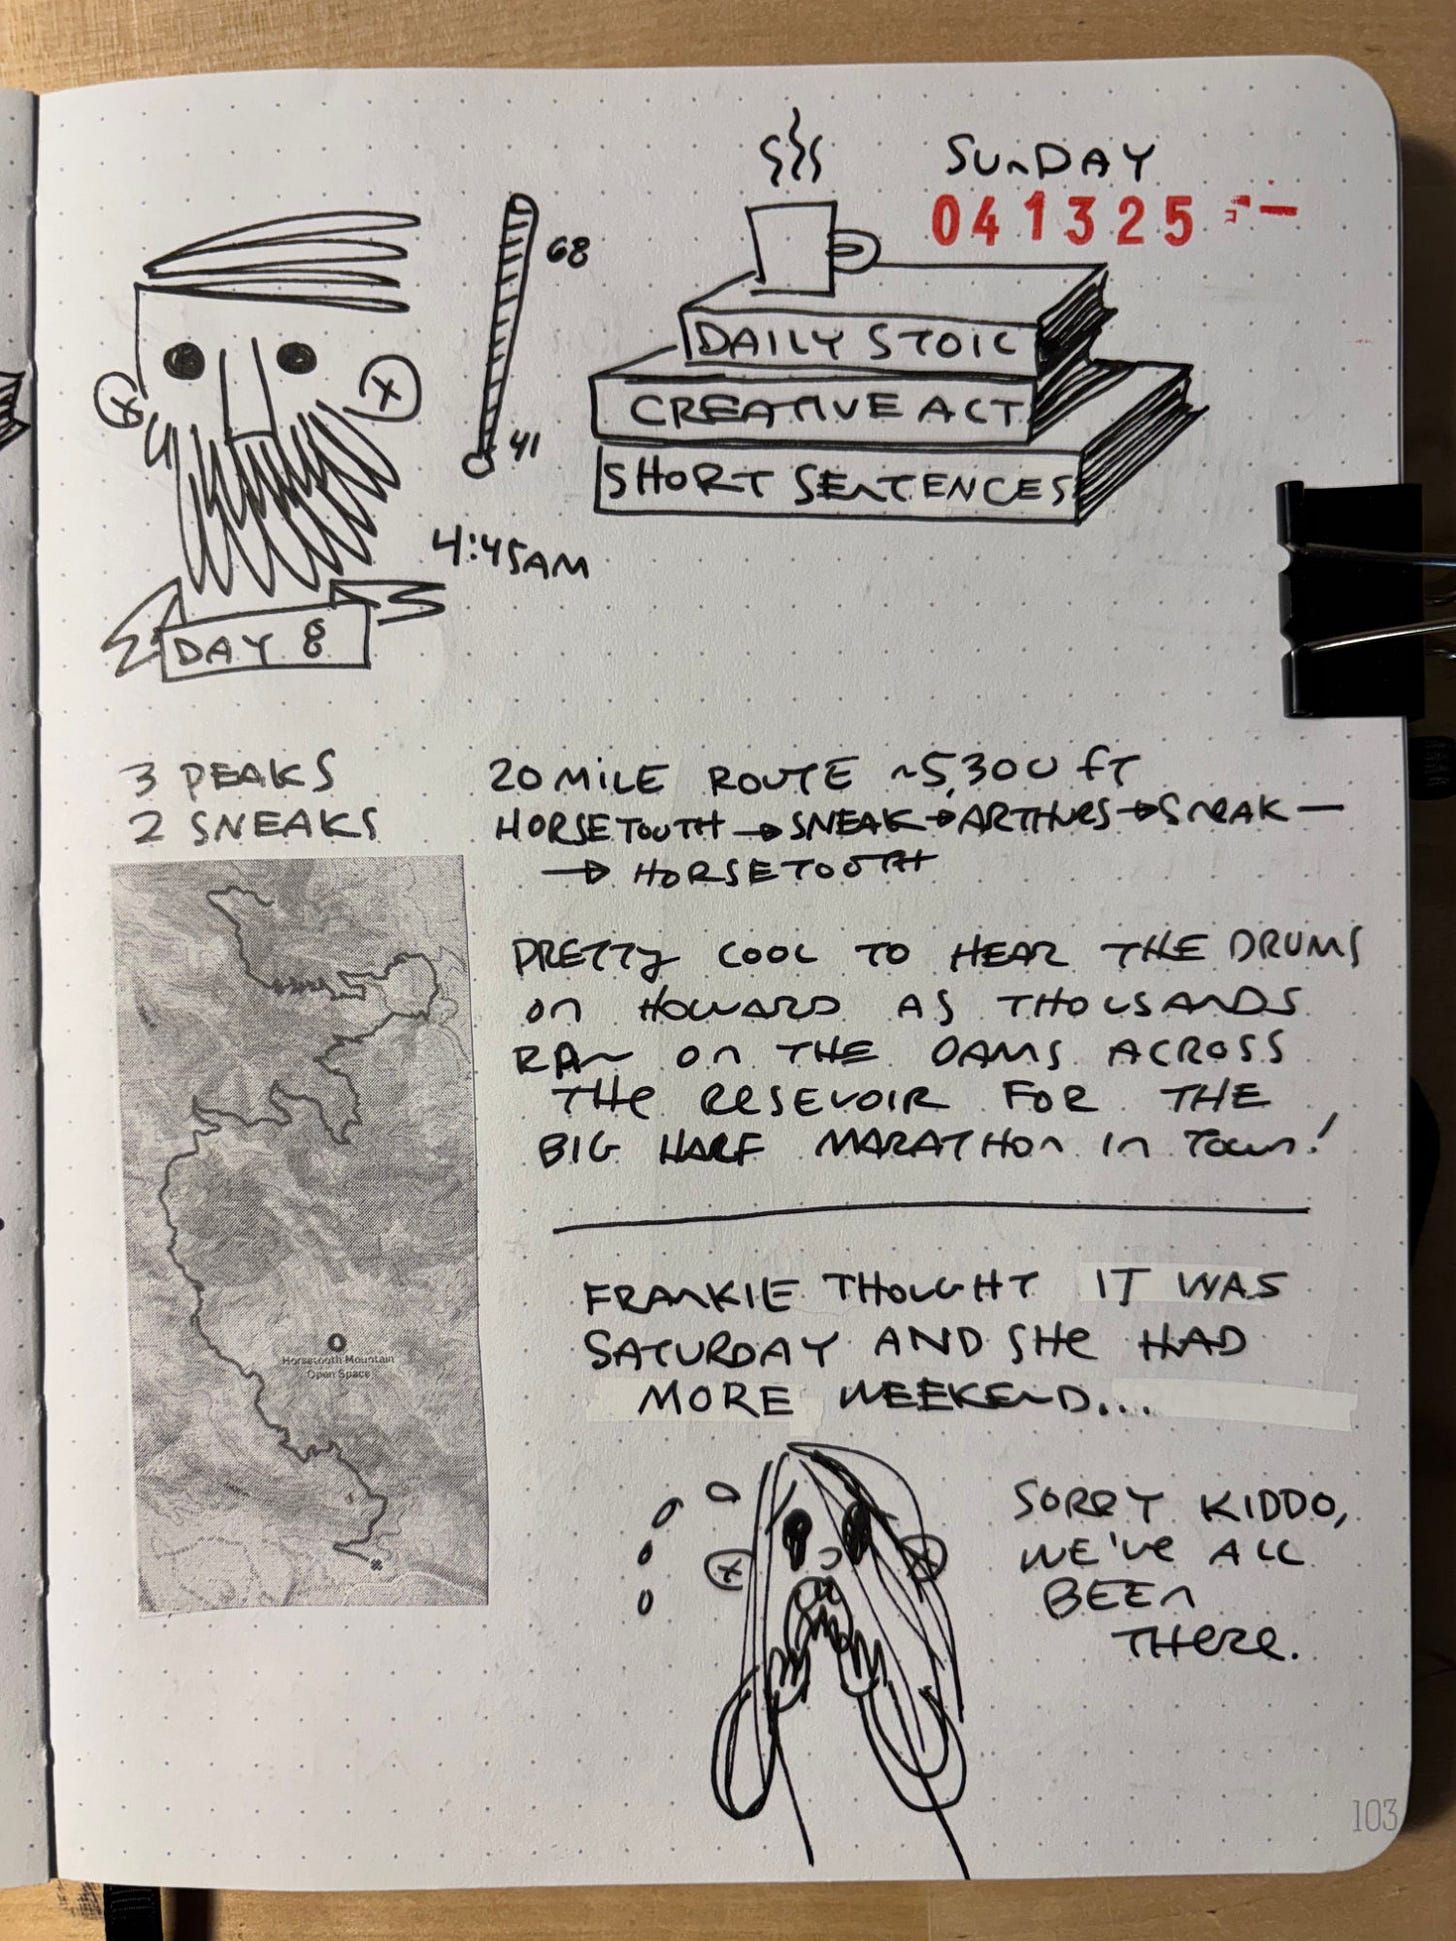 SUNDAY
041325
68
41
4:45AM
DAY 8
DAILY STOIC
CREATIVE ACT
SHORT SENTENCES
3 PEAKS
2 SNEAKS
20 MILE ROUTE ~5,300 FT
HORSETOOTH → SNEAK → ARTHURS → SNEAK —
→ HORSETOOTH
PRETTY COOL TO HEAR THE DRUMS
ON HOWARD AS THOUSANDS
RAN ON THE DAMS ACROSS
THE RESEVOIR FOR THE
BIG HALF MARATHON IN TOWN!
Horsetooth Mountain
Open Space
FRANKIE THOUGHT IT WAS
SATURDAY AND SHE HAD
MORE WEEKEND...
SORRY KIDDO,
WE'VE ALL
BEEN
THERE.
103